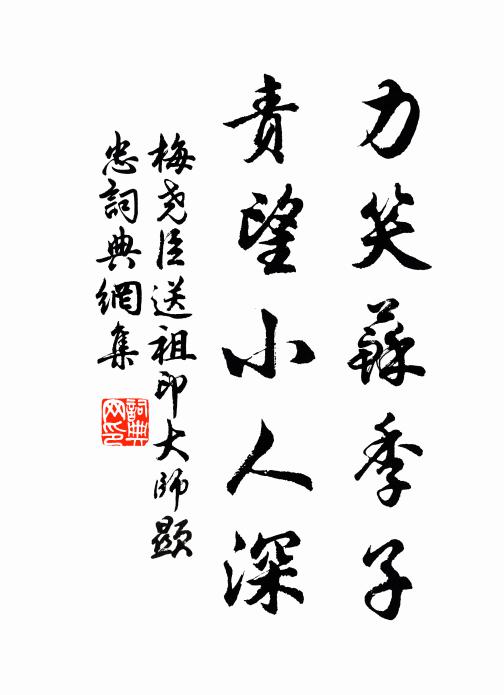 力笑蘇季子
責望小人深
梅堯臣送祖印大師顯
忠詞典網集
詞典
网印